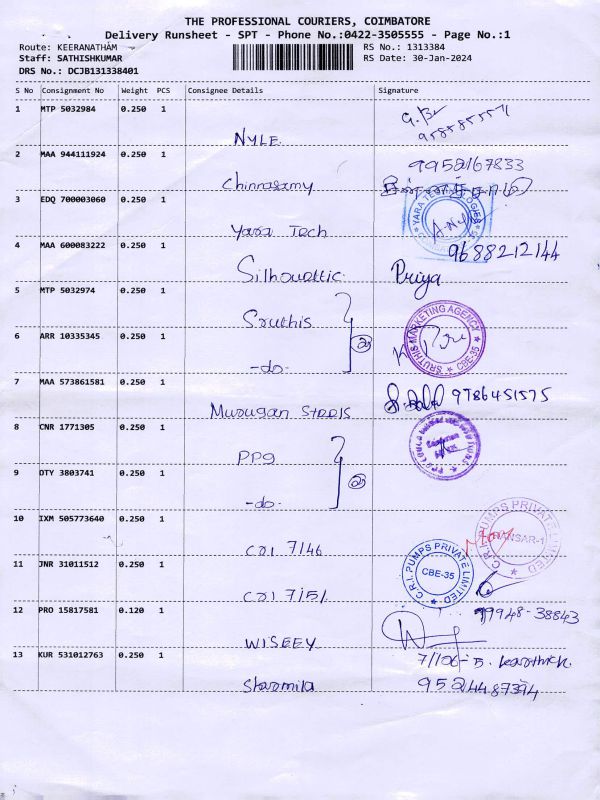 THE PROFESSIONAL COURIERS, COIMBATORE
Delivery Runsheet - SPT - Phone No.:0422-3505555 - Page No.:1
Route: KEERANATHAM
RS No.: 1313384
Staff: SATHISHKUMAR
RS Date: 30-Jan-2024
DRS No.: DCJB131338401
S No Consignment No Weight PCS Consignee Details Signature
1 MTP 5032984 0.250 1
NYLE
2 MAA 944111924 0.250 1
9952167833
Chinnasamy
3 EDQ 700003060 0.250 1
YARA TECHNOLOGIES
Yara Tech
4 MAA 600083222 0.250 1
9688212144
Silhouttic Priya
5 MTP 5032974 0.250 1
Sruthis
6 ARR 10335345 0.250 1
SRUTHIS MARKETING AGENCY
CBE-35
-do-
7 MAA 573861581 0.250 1
9786451575
Murugan Steels
8 CNR 1771305 0.250 1
PPG
9 DTY 3803741 0.250 1
-do-
10 IXM 505773640 0.250 1
C.R.I. PUMPS PRIVATE LIMITED
CRI 7/46
11 JNR 31011512 0.250 1
C.R.I. PUMPS PRIVATE LIMITED
CBE-35
CRI 7/51
12 PRO 15817581 0.120 1
99948-38843
WISEEY
13 KUR 531012763 0.250 1
7/106-5. Karthick.
Sharmila